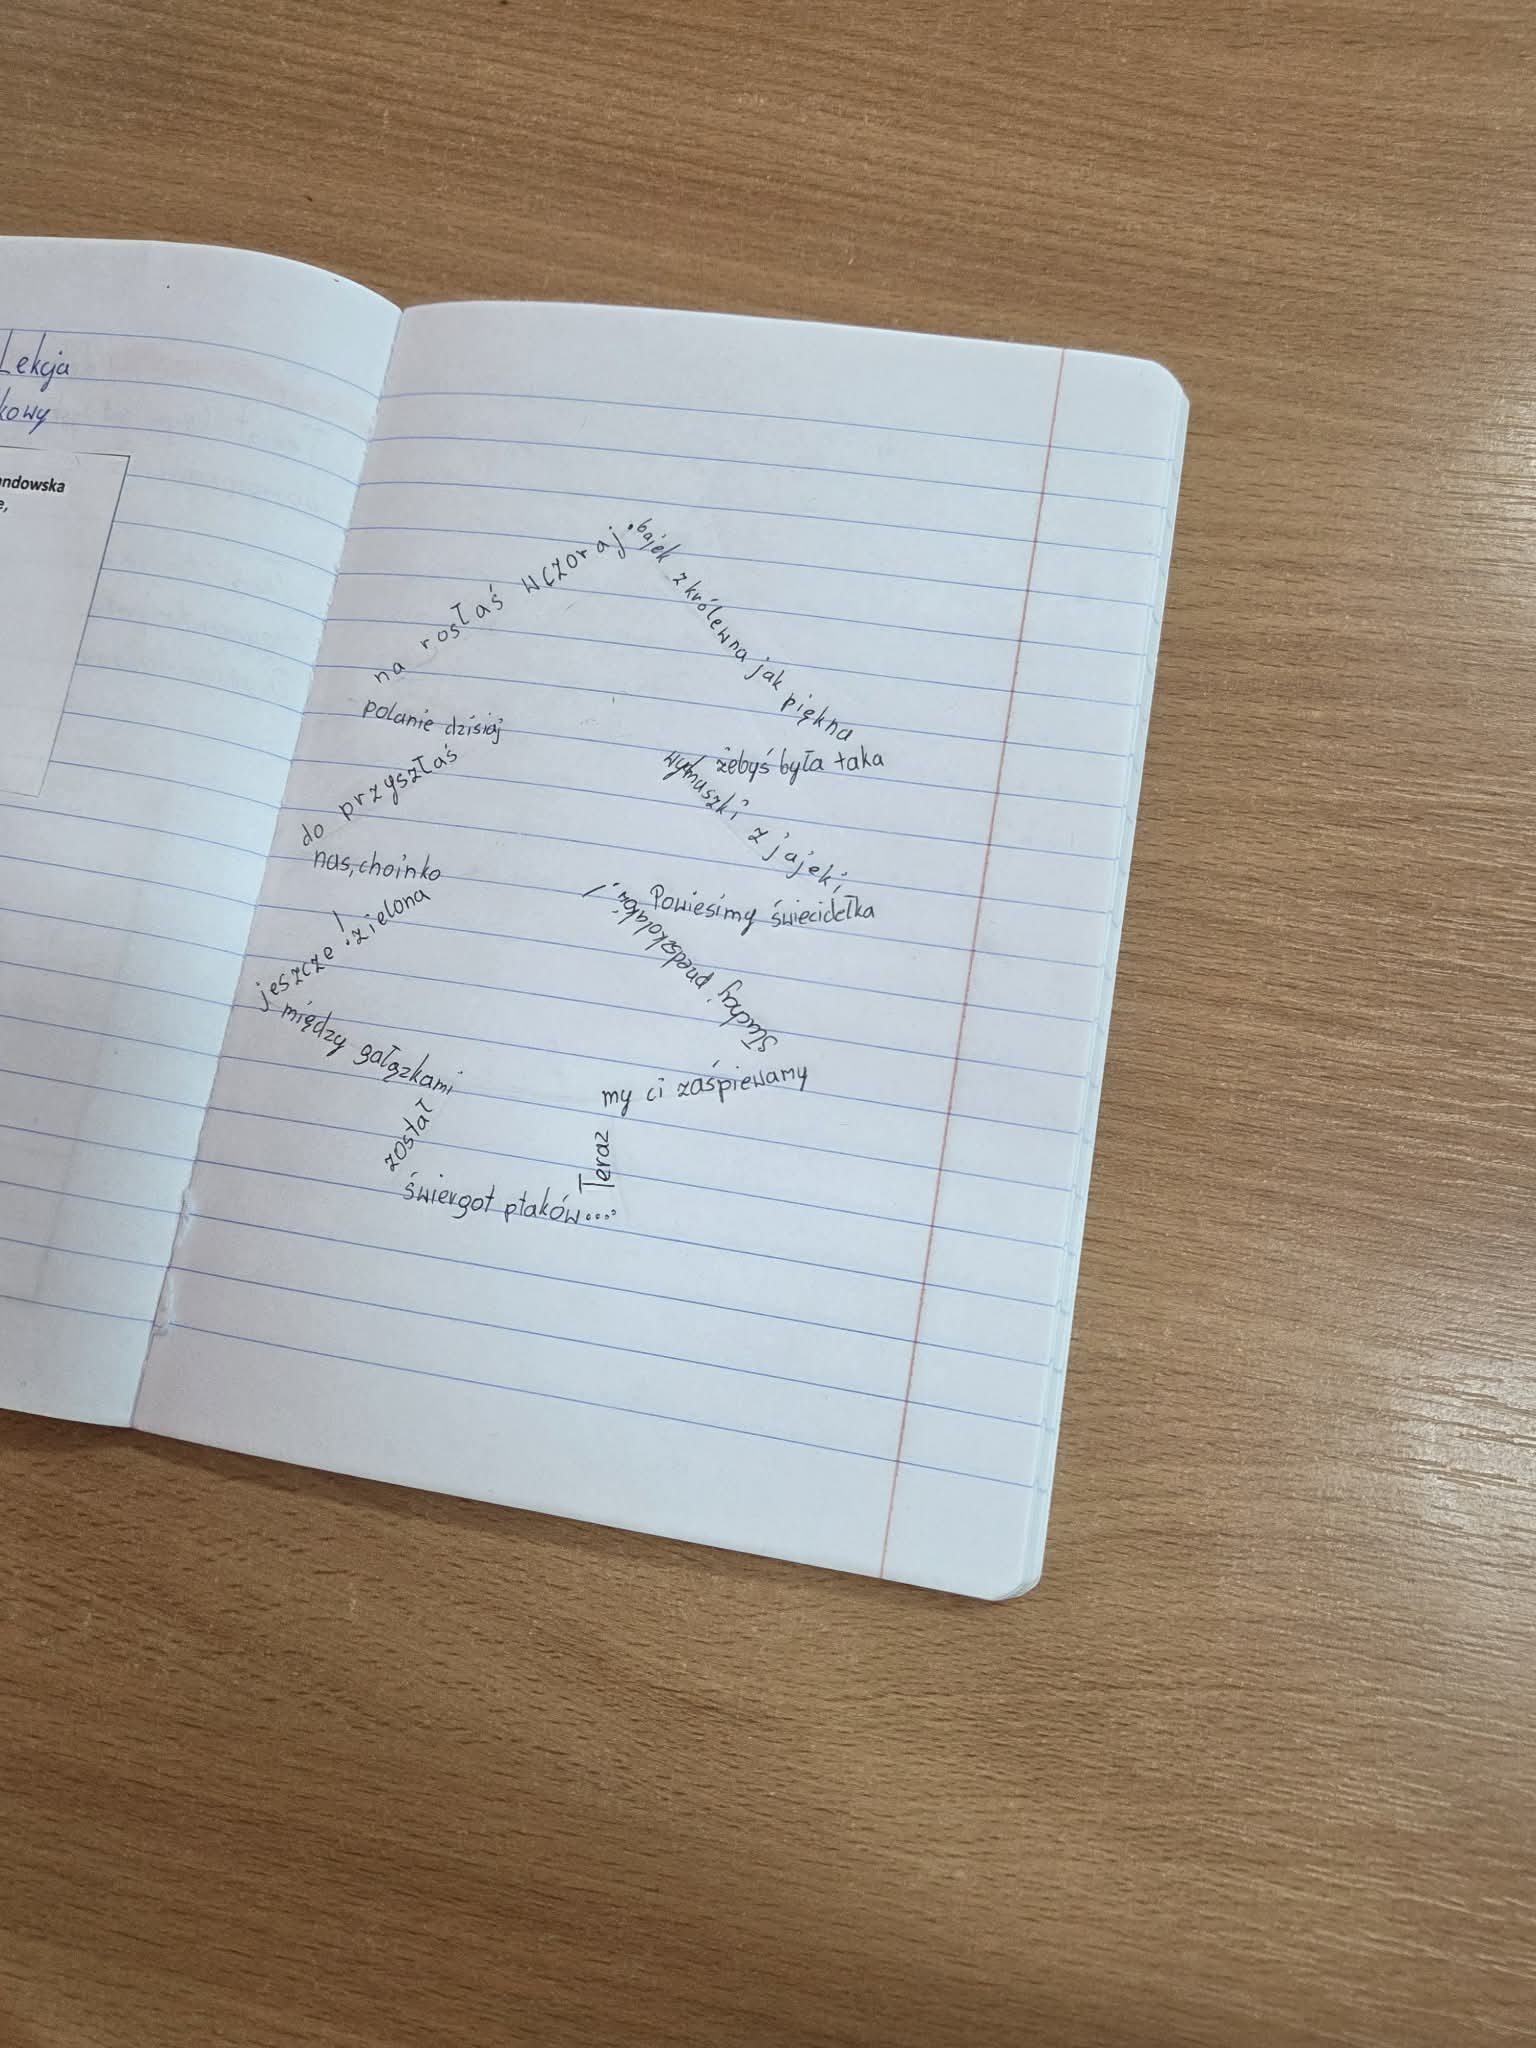 Lekcja
kowy
andowska
e,
na rosłaś wczoraj.
polanie dzisiaj
do przyszłaś
nas, choinko
jeszcze! zielona
między gałązkami
został
świergot ptaków....
Teraz
my ci zaśpiewamy
Słuchaj przedszkolaków,
Powiesimy świecidełka
wydmuszki z jajek i,
żebyś była taka
piękna jak królewna z bajek